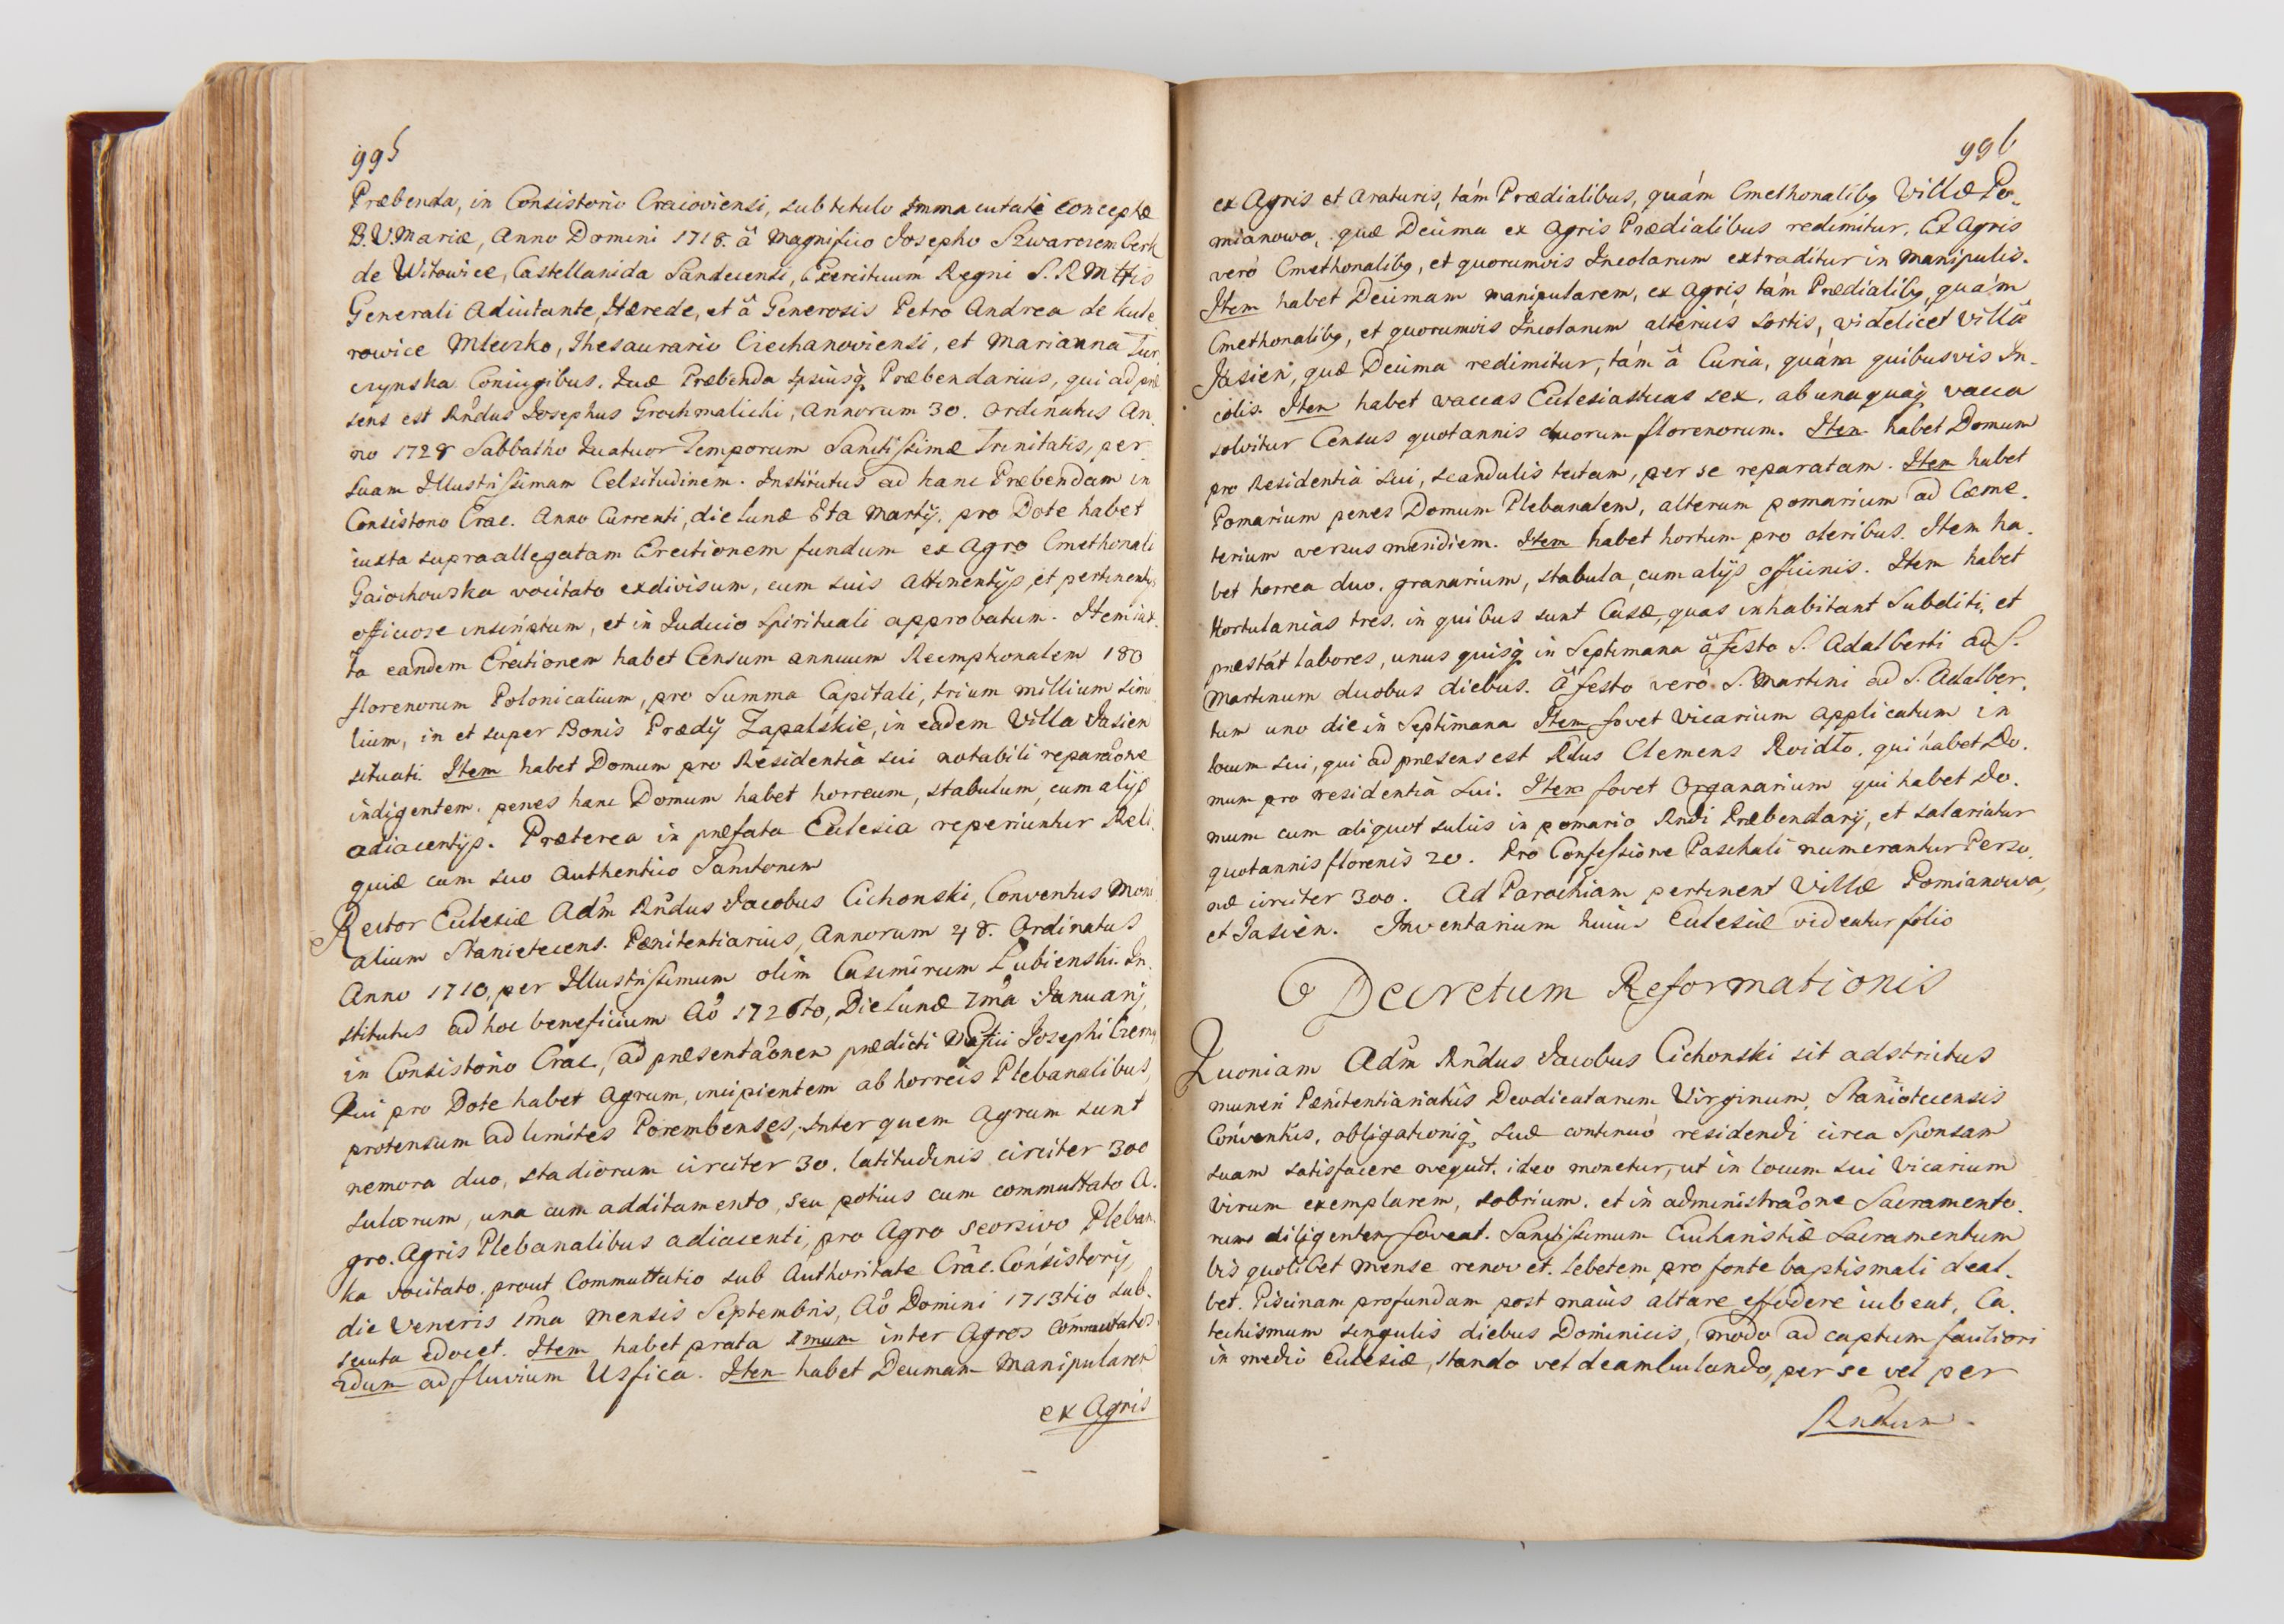 995
Præbenda, in Consistorio Cracoviensi, sub titulo Immaculatæ Conceptæ
B. V. Mariæ, Anno Domini 1718. â Magnifico Josepho Szwarcemberk
de Witowice, Castellanida Sandecensi, Exercituum Regni S. R Mttis
Generali Adiutante, Hærede, et â Generosis Petro Andrea de Kule
rowice Mleczko, Thesaurario Ciechanoviensi, et Marianna Tur
czynska Coniugibus. Quæ Præbenda Ipsiusq Præbendarius, qui ad præ
sens est Rndus Josephus Grochmalicki, Annorum 30. Ordinatus An.
no 1728 Sabbatho Quatuor Temporum Sanctissimæ Trinitatis, per
Suam Illustrissimam Celsitudinem. Institutus ad hanc Præbendam in
Consistorio Crac. Anno Currenti, die Lunæ 8ta Martij. pro Dote habet
iuxta supraallegatam Erectionem fundum ex Agro Cmethonali
Gaiochowska vocitato exdivisum, cum suis Attinentijs, et pertinentijs
officiose inscriptum, et in Judicio Spirituali approbatum. Item iux.
ta eandem Erectionem habet Censum annuum Reemptionalem 180
florenorum Polonicalium, pro Summa Capitali, trium millium sim
lium, in et super Bonis Prædij Zapalskie, in eadem Villa Jasien
situati. Item habet Domum pro Residentiâ sui notabili reparaõne
indigentem. penes hanc Domum habet horreum, stabulum, cum alijs
adiacentijs. Præterea in præfata Ecclesia reperiuntur Reli.
quiæ cum suo Authentico Sanctorum
Rector Ecclesiæ Adm Rndus Jacobus Cichonski, Conventus Moni
alium Stanietecens. Pænitentiarius, Annorum 48. Ordinatus
Anno 1710, per Illustrissimum olim Casimirum Lubienski. In.
stitutus ad hoc beneficium Aô 1726to, Die Lunæ 7ma Januarij,
in Consistorio Crac., ad præsentaõnem prædicti Mgfici Josephi Czerny
Qui pro Dote habet Agrum, incipientem ab horreis Plebanalibus,
protensum ad limites Porembenses, Inter quem Agrum sunt
nemora duo, stadiorum circiter 30. latitudinis circiter 300
sulcorum, una cum additamento, seu potius cum commuttato A.
gro. Agris Plebanalibus adiacenti, pro Agro seorsivo Pleban.
ka vocitato. prout Commuttatio sub Authoritate Crac. Consistorij,
die Veneris 1ma Mensis Septembris, Aô Domini 1713tio sub.
secuta edocet. Item habet prata 1mum inter Agros Commutatos
2dum ad fluvium Usfica. Item habet Decimam Manipularem
ex Agris
996
ex Agris et Araturis, tám Prædialibus, quám Cmethonalibq Villæ Po.
mianowa, quæ Decima ex Agris Prædialibus redimitur, Ex Agris
verò Cmethonalibq, et quorumvis Incolarum extraditur in Manipulis.
Item habet Decimam manipularem, ex Agris tám Prædialibq, quám
Cmethonalibq, et quorumvis Incolarum alterius sortis, videlicet Villæ
Jasień, quæ Decima redimitur, tám â Curia, quám quibusvis In.
colis. Item habet vaccas Ecclesiasticas sex. ab unaquaq vacca
solvitur Census quotannis duorum florenorum. Item habet Domum
pro Residentiâ sui, scandulis tectam, per se reparatam. Item habet
Pomarium penes Domum Plebanalem, alterum pomarium ad Cæme.
terium versus meridiem. Item habet hortum pro oleribus. Item ha.
bet horrea duo, granarium, stabula, cum alijs officinis. Item habet
Hortulanias tres. in quibus sunt Casæ, quas inhabitant Subditi, et
præstât labores, unus quisq in Septimana â festo S. Adalberti ad S.
Martinum duobus diebus. Â festo verò S. Martini ad S. Adalber.
tum uno die in Septimana Item fovet Vicarium Applicatum in
locum sui, qui ad præsens est Rdus Clemens Roidło. qui habet Do.
mum pro residentiâ sui. Item fovet Organarium qui habet Do.
mum cum aliquot sulcis in pomario Rndi Præbendarij, et salariatur
quotannis florenis 20. Pro Confessione Paschali numerantur Perso.
næ circiter 300. Ad Parochiam pertinent Villæ Pomianowa,
et Jasień. Inventarium huius Ecclesiæ videatur folio
Decretum Reformationis
Quoniam Adm Rndus Jacobus Cichonski sit adstrictus
muneri Pænitentiariatûs Deodicatarum Virginum, Staniotecensis
Conventûs, obligationiq suæ continuò residendi circa Sponsam
suam satisfacere nequit. ideo monetur, ut in locum sui Vicarium
Virum exemplarem, sobrium. et in administraõne Sacramento.
rum diligentem foveat. Sanctissimum Eucharistiæ Sacramentum
bis quolibet mense renovet. Lebetem pro fonte baptismali deal.
bet. Piscinam profundam post maius altare effodere iubeat, Ca.
techismum singulis diebus Dominicis, modo ad captum faciliori
in medio Ecclesiæ, stando vel deambulando, per se vel per
Rndum